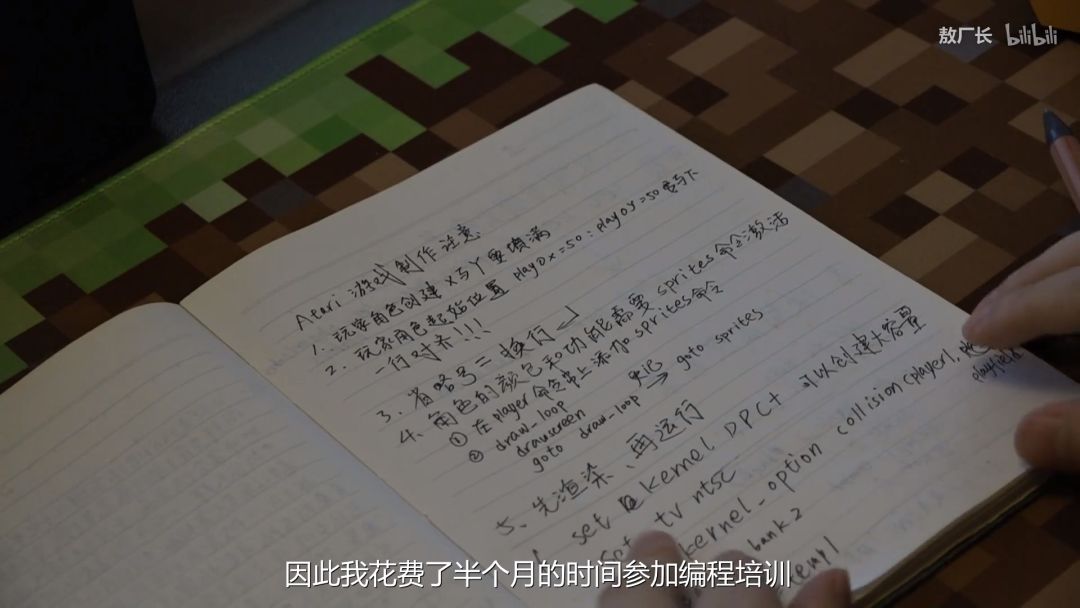 敖厂长 bilibili
Atari 游戏制作注意
1、玩家角色创建 x与y要填满
2、玩家角色起始位置 playox=50:playoy=50要写下
一行对齐!!!
3、省略号=换行↲
4、角色的颜色和功能需要sprites命令激活
① 在player命令上添加sprites命令
② draw_loop
drawscreen
goto draw_loop → goto sprites
5、先渲染、再运行
set kernel DPC+ 可以创建大容量
set tv ntsc
kernel_option collision(player1,
playfield
bank 2
temp1
因此我花费了半个月的时间参加编程培训